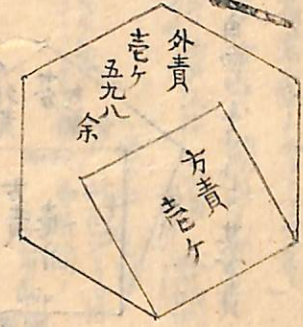 外責
壱ケ
五九八
余
方責
壱ケ